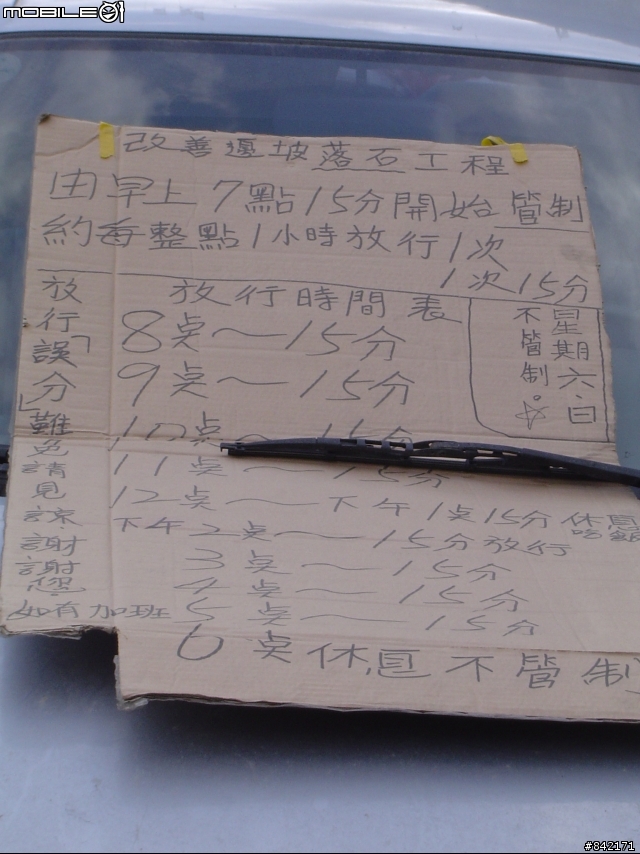 MOBILE01
改善邊坡落石工程
由早上7點15分開始管制
約每整點1小時放行1次
1次15分
放行時間表
星期六.日
不管制。
8点～15分
9点～15分
10点～15分
11点～15分
12点～下午1点15分 休息
吃飯
下午2点～15分放行
3点～15分
4点～15分
如有加班5点～15分
6点休息不管制
放行誤「分」難免請見諒謝謝您
#842171